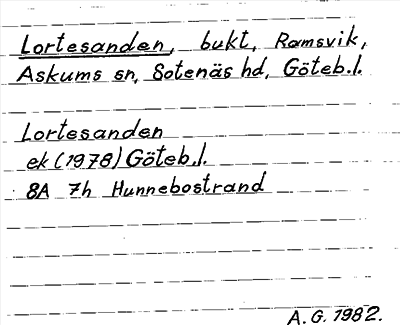 Lortesanden, bukt, Ramsvik,
Askums sn, Sotenäs hd, Göteb.l.
Lortesanden
ek (1978) Göteb.l.
8A 7h Hunnebostrand
A.G. 1982.